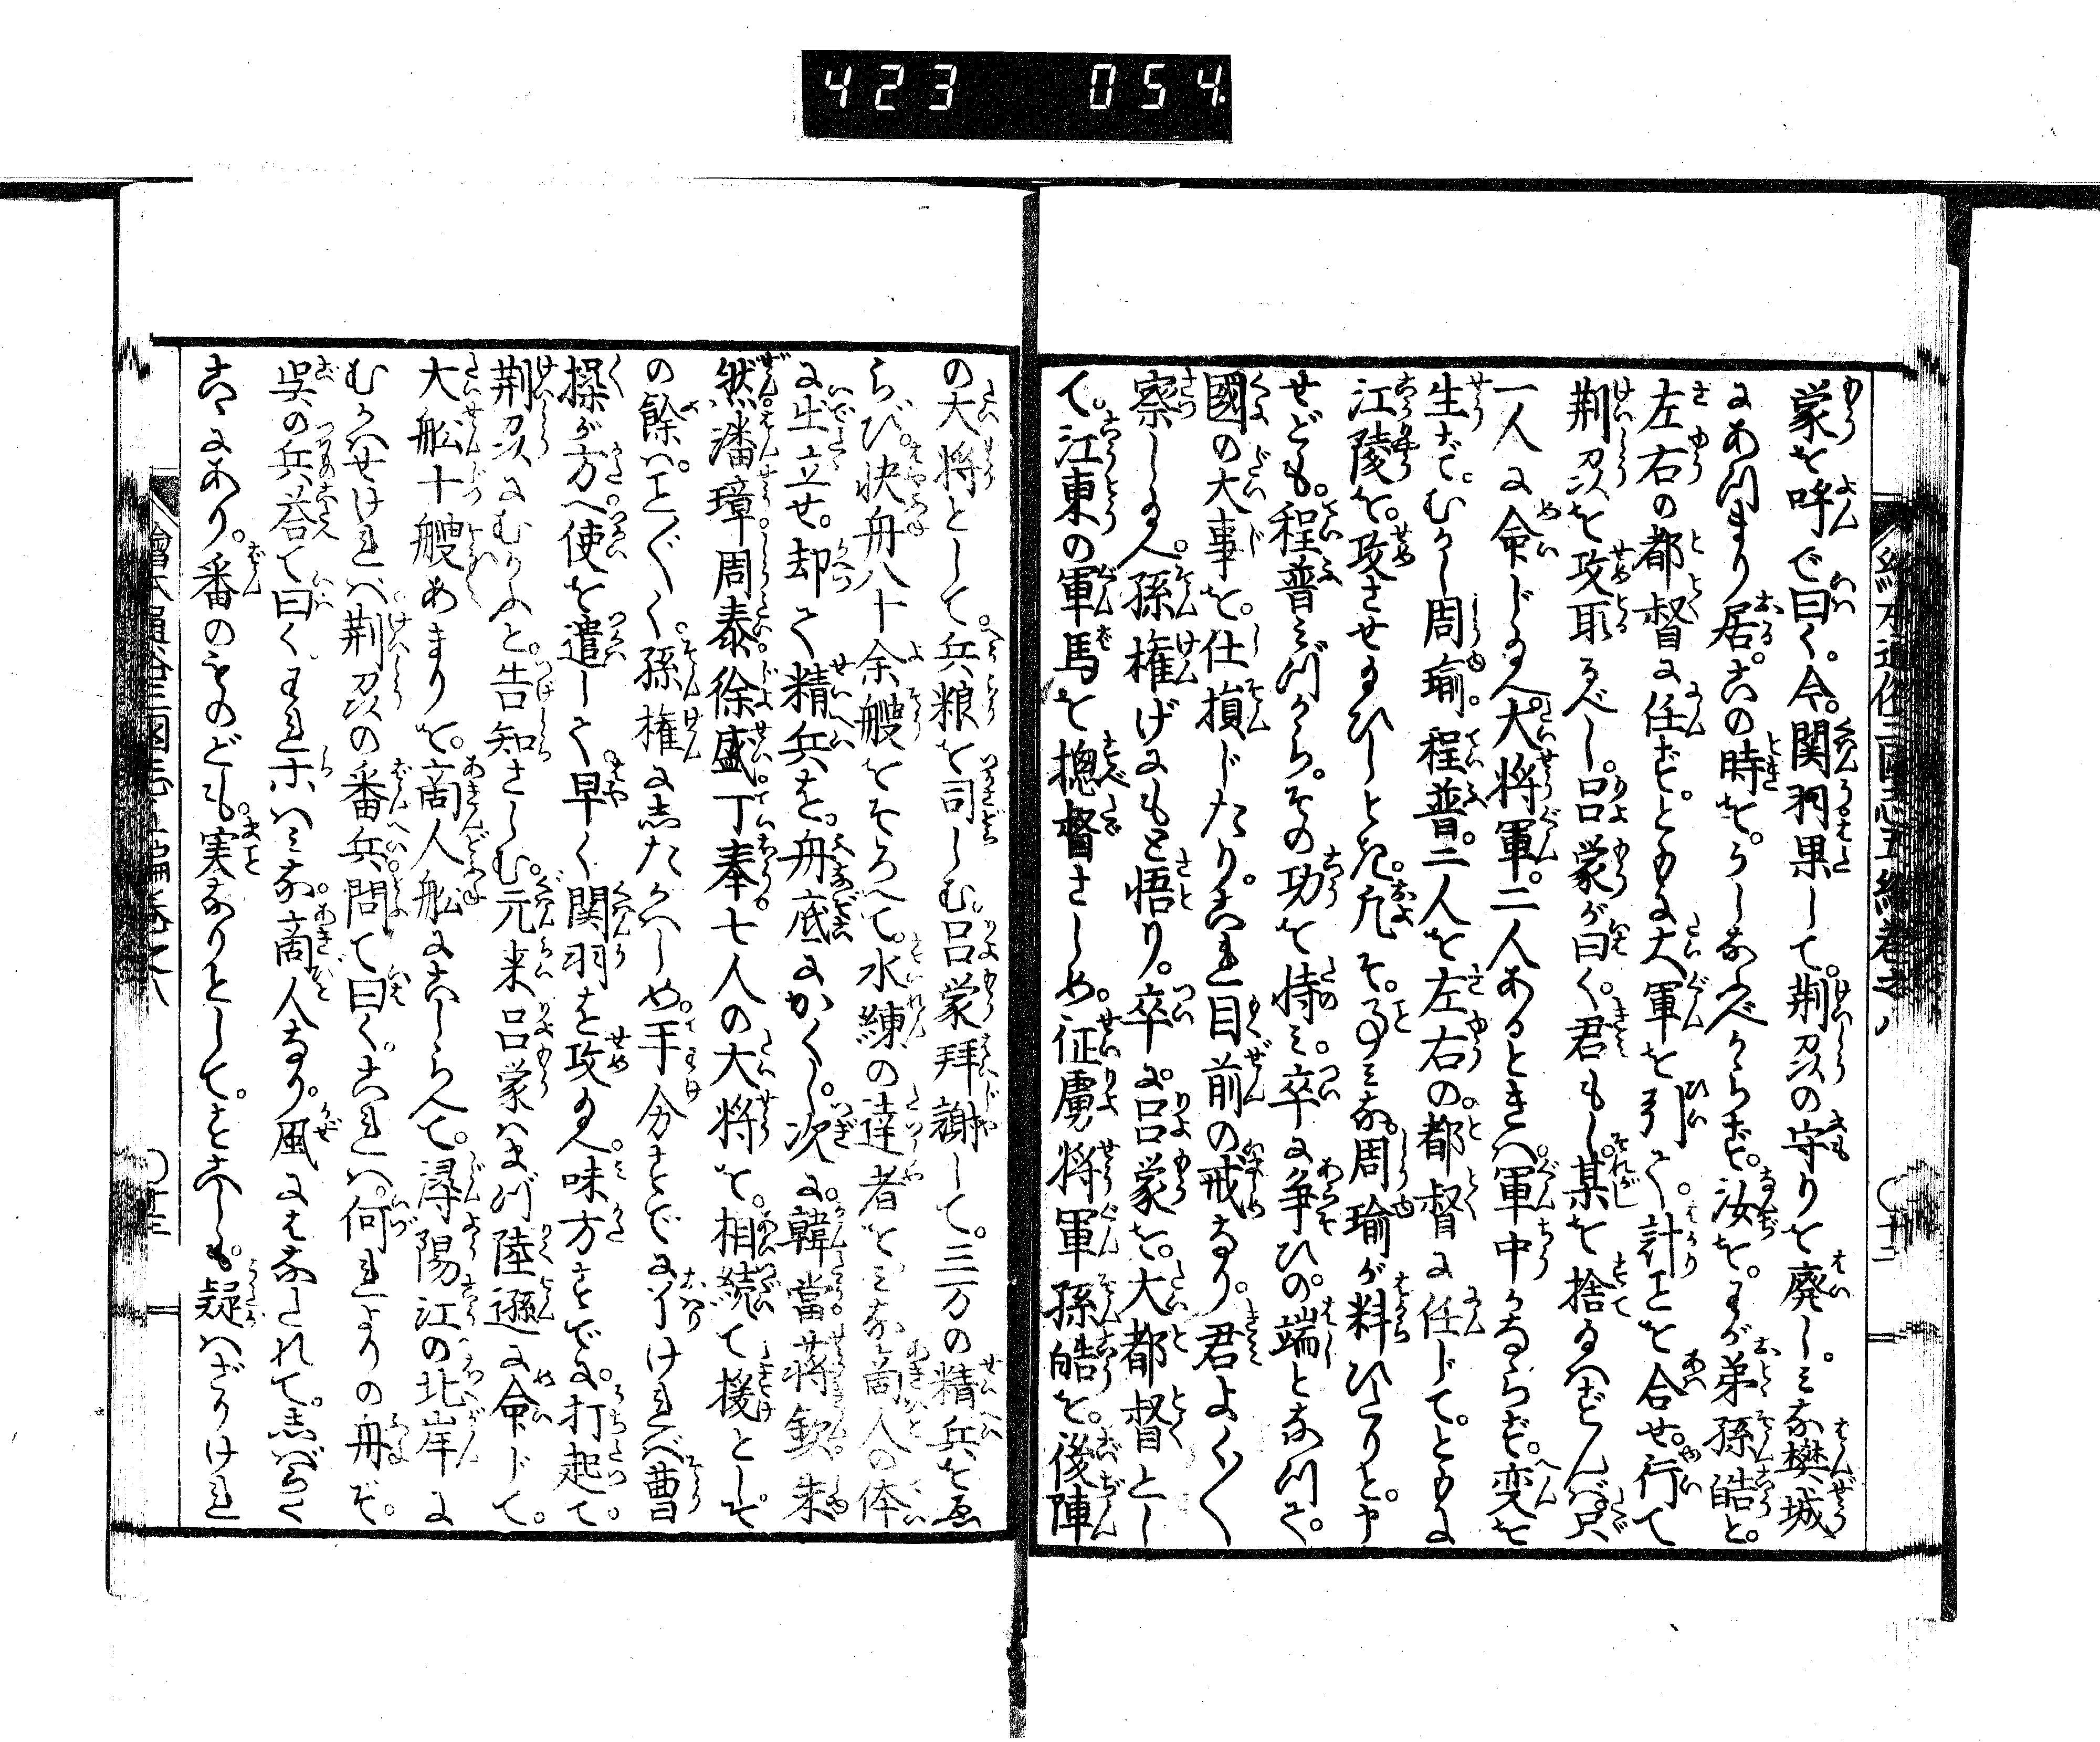 423 054.
繪本通俗三國志五編卷之八
〇十二
蒙を呼で曰く。今。関羽果して。荆刕の守りを廃し。みな樊城
にあつまり居。この時を。うしなふべからず。汝を。わが弟孫皓と。
左右の都督に任ず。ともに大軍を引て。計ことを合せ。行て
荆刕を攻取るべし。呂蒙が曰く。君もし。某を捨るへずんば只
一人に命じ玉へ。大将軍。二人あるときハ。軍中かならず。変を
生ず。むかし周瑜。程普。二人を左右の。都督に任じて。ともに
江陵を。攻させ玉ひしとき。凢そ。事みな。周瑜が料ひたりと。申
せども。程普みづから。その功を恃み。卒に争ひの。端となつて。
國の大事を。仕損じたり。これ目前の戒なり。君よく〳〵
察し玉へ。孫権げにもと悟り。卒に。呂蒙を。大都督とし
て。江東の軍馬を摠督さしめ。征虜将軍孫皓を。後陣
の大将として。兵粮を司しむ。呂蒙拜謝して。三万の精兵をゑ
らび。快舟八十余艘をそろへて。水練の達者をみな商人の体
に出立せ。却て精兵を。舟底にかくし。次に。韓當。蒋欽。朱
然。潘璋。周泰。徐盛。丁奉。七人の大将を。相続て援とし。そ
の餘ハ。こと〴〵く。孫権にしたがへしめ。手分すでに了りけれバ。曹
操が方へ使を遣して早く関羽を攻玉へ。味方すでに。打起て。
荆刕にむかふと。告知さしむ。元来呂蒙ハまづ陸遜に命じて。
大舩十艘あまりを。商人舩にこしらへて。潯陽江の北岸に
むかハせけれバ。荆刕の番兵。問て曰く。これハ。何れよりの舟ぞ。
呉の兵荅て曰く。われ〳〵ハみな。商人なり。風にはなされて。しバらく
こゝにあり。番のものども。実なりとして。すこしも。疑ハざりけれ
繪本通俗三國志五編卷之八
〇十三